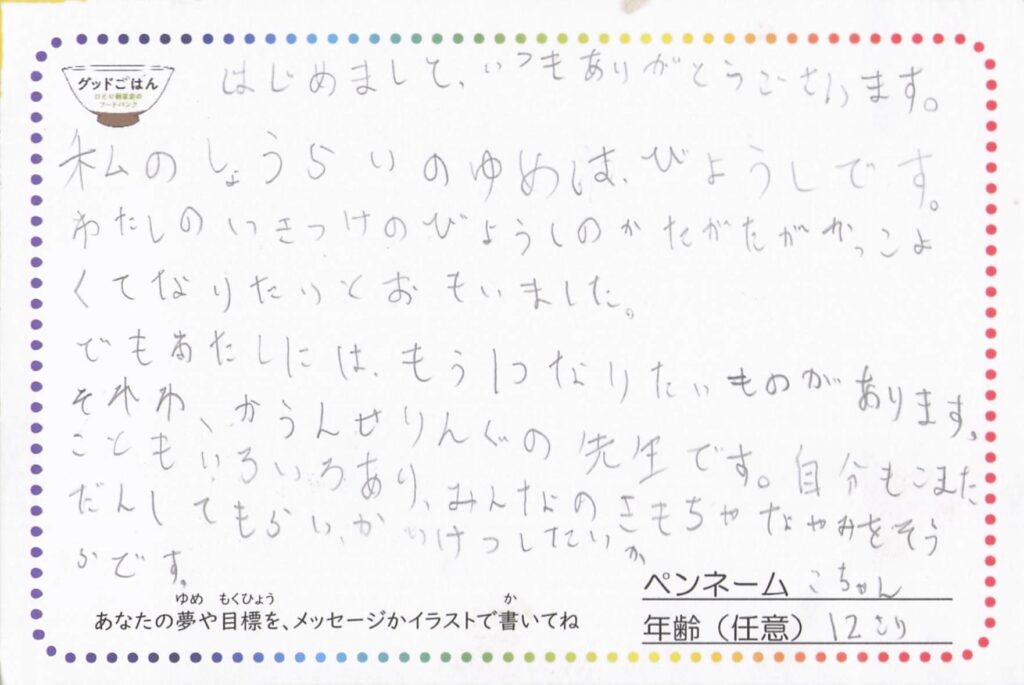 グッドごはん
ひとり親家庭の
フードバンク
はじめまして、いつもありがとうございます。
私のしょうらいのゆめは、びようしです。
わたしのいきつけのびようしのかたがたがかっこよ
くてなりたいとおもいました。
でもわたしには、もう1つなりたいものがあります。
それわ、かうんせりんぐの先生です。自分もこまた
こともいろいろあり、みんなのきもちやなやみをそう
だんしてもらい、かいけつしたいか
らです。
ゆめ もくひょう か
あなたの夢や目標を、メッセージかイラストで書いてね
ペンネーム こちゃん
年齢（任意） 12さい